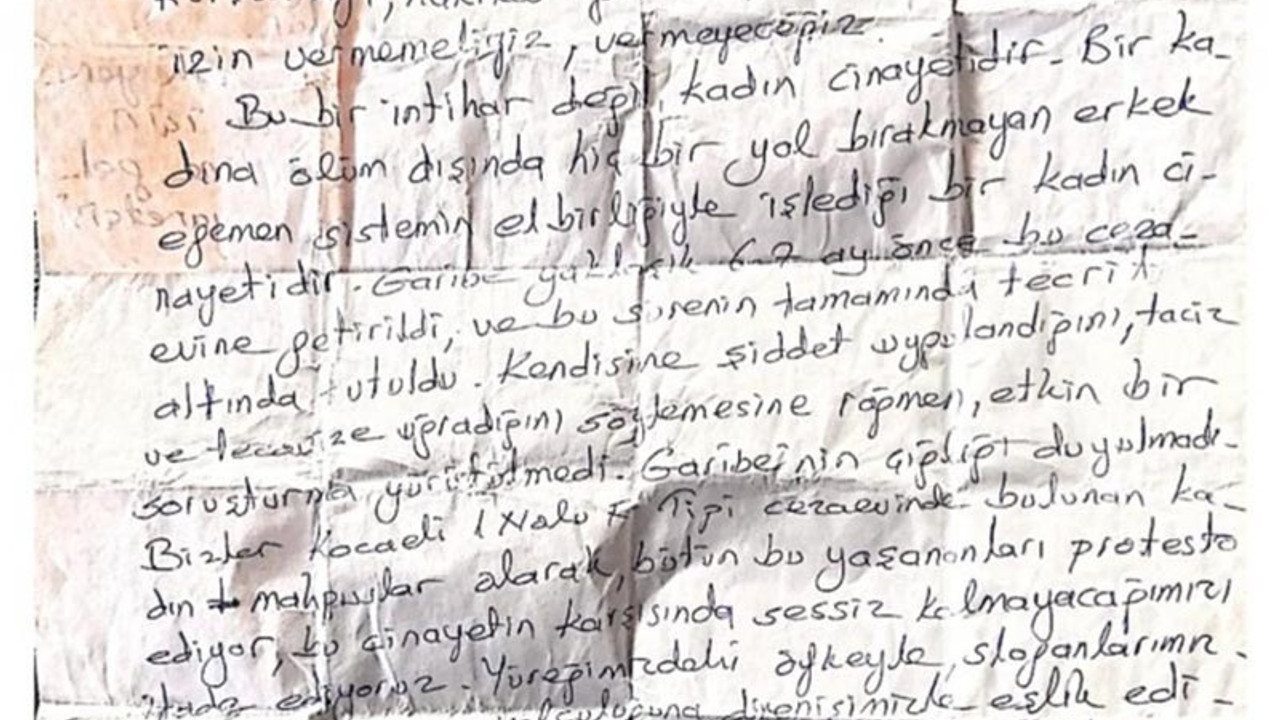 izin vermemeliyiz, vermeyeceğiz.
Bu bir intihar değil, kadın cinayetidir. Bir ka-
dına ölüm dışında hiç bir yol bırakmayan erkek
egemen sistemin elbirliğiyle işlediği bir kadın ci-
nayetidir. Garibe yaklaşık 6-7 ay önce bu ceza-
evine getirildi, ve bu sürenin tamamında tecrit
altında tutuldu. Kendisine şiddet uygulandığını, taciz
ve tecavüze uğradığını söylemesine rağmen, etkin bir
soruşturma yürütülmedi. Garibe'nin çığlığı duyulmadı.
Bizler Kocaeli 1 Nolu F Tipi cezaevinde bulunan ka-
dın mahpuslar olarak, bütün bu yaşananları protesto
ediyor, bu cinayetin karşısında sessiz kalmayacağımızı
ifade ediyoruz. Yüreğimizdeki öfkeyle, sloganlarımız
direnişimizle eşlik edi-